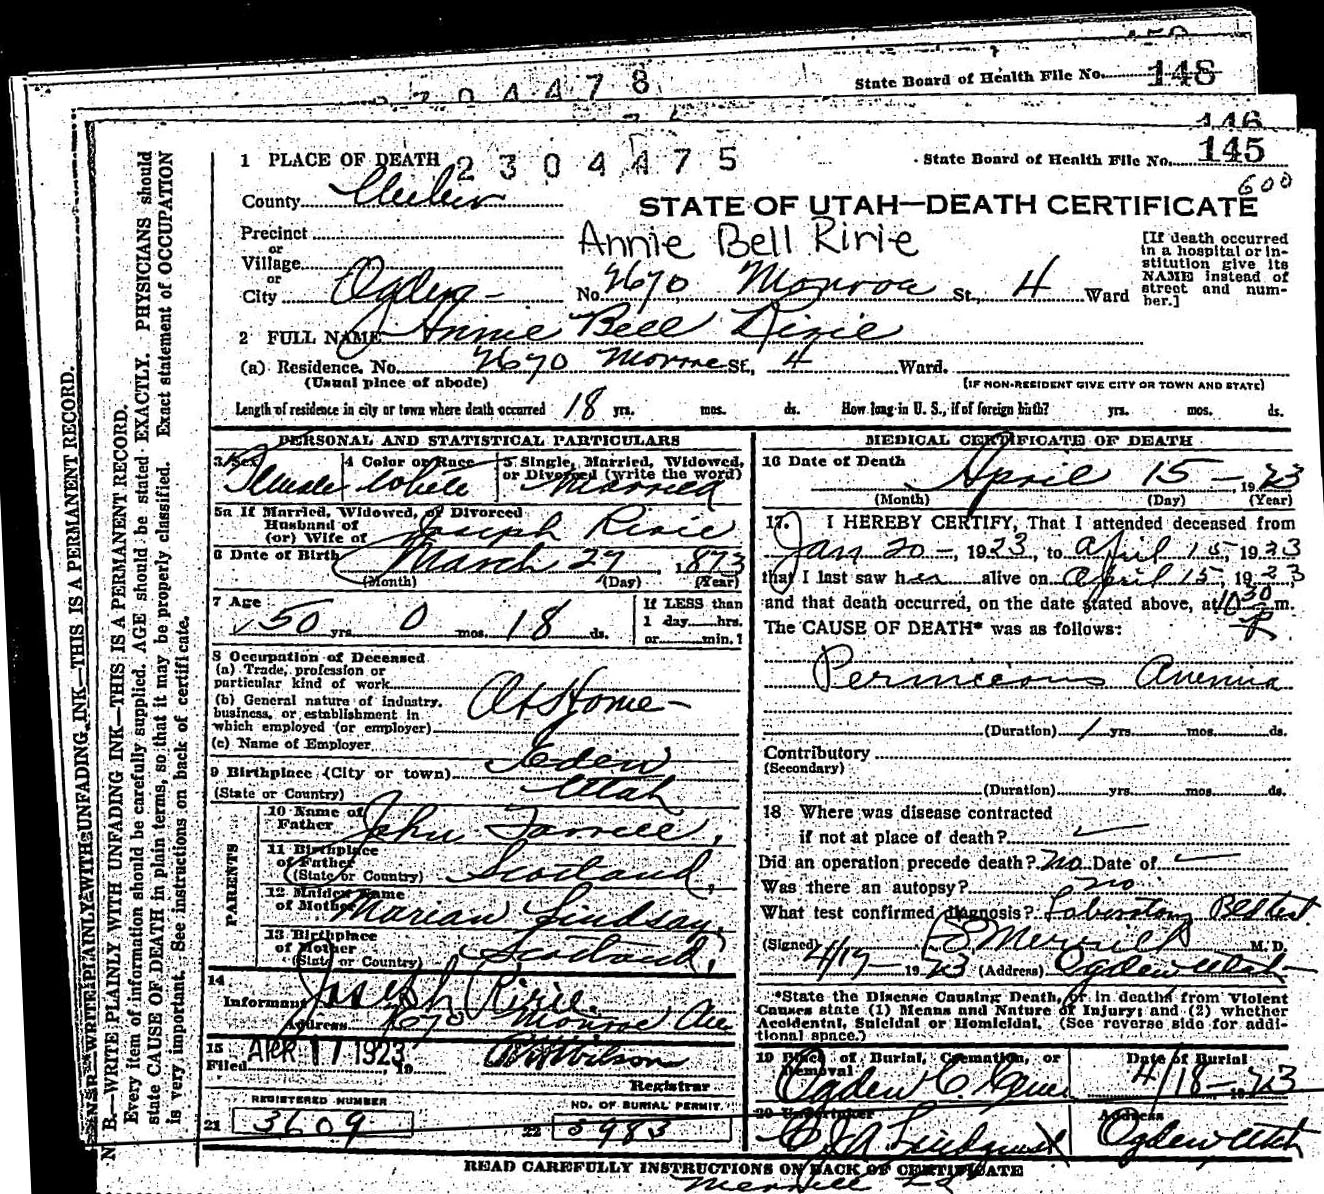 State Board of Health File No. 148
2 7 0 4 4 7 8
146
1 PLACE OF DEATH 2 3 0 4 4 7 5
State Board of Health File No. 145
600
County Weber
STATE OF UTAH—DEATH CERTIFICATE
Precinct
or
Village
or
City Ogden -
Annie Bell Ririe
No. 2670 Monroe St., 4 Ward
[If death occurred
in a hospital or in-
stitution give its
NAME instead of
street and num-
ber.]
2 FULL NAME Annie Bell Ririe
(a) Residence. No. 2670 Monroe St., 4 Ward.
(Usual place of abode)
(IF NON-RESIDENT GIVE CITY OR TOWN AND STATE)
Length of residence in city or town where death occurred 18 yrs. mos. ds. How long in U. S., if of foreign birth? yrs. mos. ds.
PERSONAL AND STATISTICAL PARTICULARS
3 Sex Female
4 Color or Race White
5 Single, Married, Widowed,
or Divorced (write the word)
Married
5a If Married, Widowed, or Divorced
Husband of
(or) Wife of Joseph Ririe
6 Date of Birth March 27, 1873
(Month) (Day) (Year)
7 Age 50 yrs. 0 mos. 18 ds.
If LESS than
1 day....hrs.
or....min.?
8 Occupation of Deceased
(a) Trade, profession or
particular kind of work
(b) General nature of industry,
business, or establishment in
which employed (or employer)
At Home -
(c) Name of Employer
9 Birthplace (City or town) Eden
(State or Country) Utah
PARENTS
10 Name of
Father John Farrell,
11 Birthplace
of Father
(State or Country) Scotland,
12 Maiden Name
of Mother Marian Lindsay,
13 Birthplace
of Mother
(State or Country) Scotland,
14
Informant Joseph Ririe.
Address 2670 Monroe Ave
15
Filed APR 17 1923, 19
Registrar
REGISTERED NUMBER
21 3609
NO. OF BURIAL PERMIT.
22 5983
MEDICAL CERTIFICATE OF DEATH
16 Date of Death April 15 -, 1923
(Month) (Day) (Year)
17. I HEREBY CERTIFY, That I attended deceased from
Jan 20 -, 1923, to April 15, 1923
that I last saw her alive on April 15, 1923
and that death occurred, on the date stated above, at 10 30 P m.
The CAUSE OF DEATH* was as follows:
Pernicious Anemia
(Duration) 1 yrs. mos. ds.
Contributory
(Secondary)
(Duration) yrs. mos. ds.
18 Where was disease contracted
if not at place of death?
Did an operation precede death? No Date of
Was there an autopsy? no
What test confirmed diagnosis? Laboratory Bld test
(Signed) Merrill M. D.
4/17 - 1923 (Address) Ogden Utah -
*State the Disease Causing Death, or in deaths from Violent
Causes state (1) Means and Nature of Injury; and (2) whether
Accidental, Suicidal or Homicidal. (See reverse side for addi-
tional space.)
19 Place of Burial, Cremation, or
Removal
Ogden C. Cem.
Date of Burial
4/18 - 1923
20 Undertaker
Lindquist
Address
Ogden, Utah
READ CAREFULLY INSTRUCTIONS ON BACK OF CERTIFICATE
Merrill
WRITE PLAINLY WITH UNFADING INK—THIS IS A PERMANENT RECORD.
N. B.—WRITE PLAINLY WITH UNFADING INK—THIS IS A PERMANENT RECORD.
Every item of information should be carefully supplied. AGE should be stated EXACTLY. PHYSICIANS should
state CAUSE OF DEATH in plain terms, so that it may be properly classified. Exact statement of OCCUPATION
is very important. See instructions on back of certificate.